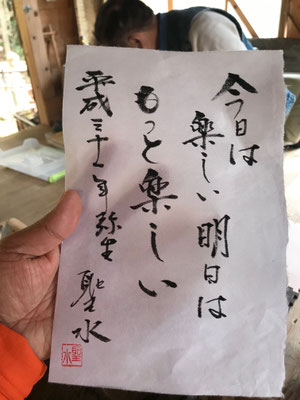 今日は
楽しい明日は
もっと楽しい
平成三十一年弥生
聖水
聖水